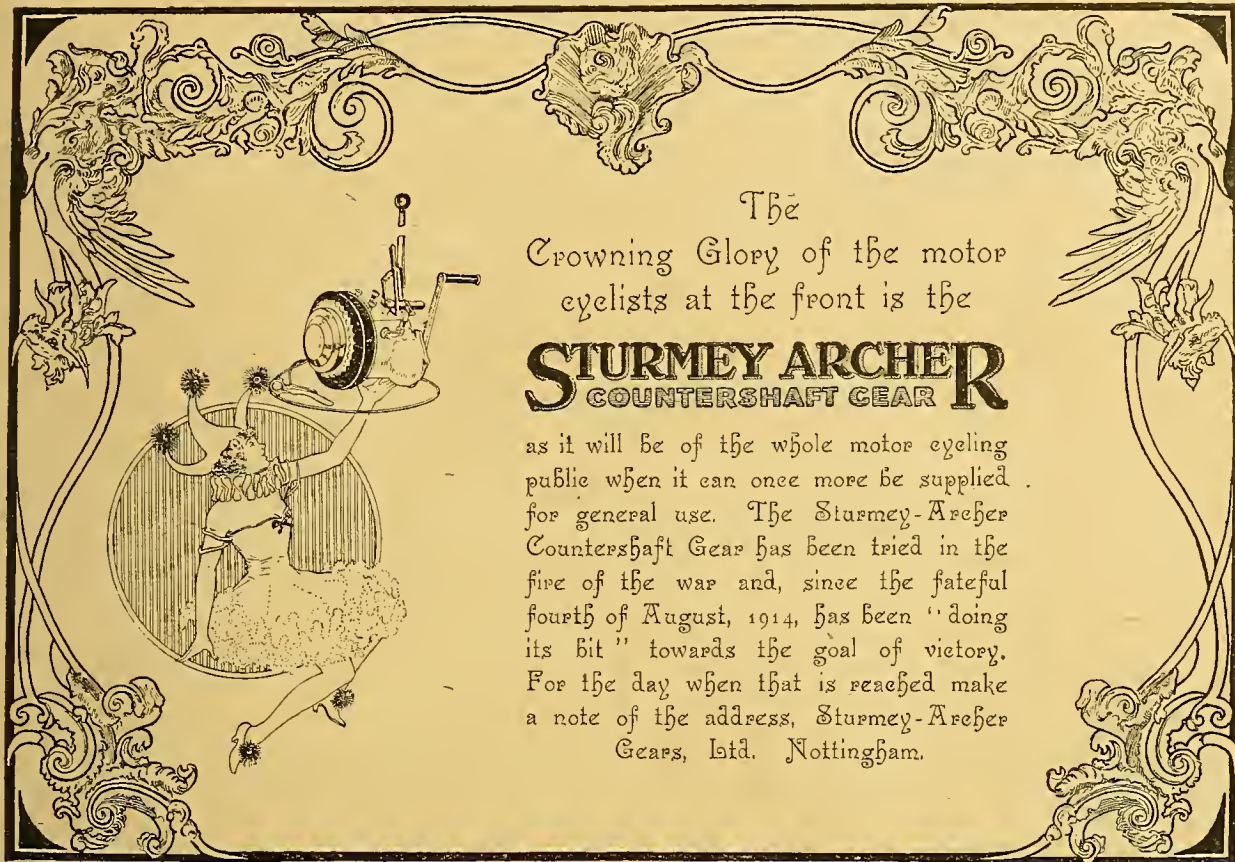 The
Crowning Glory of the motor
cyclists at the front is the
STURMEY ARCHER
COUNTERSHAFT GEAR
as it will be of the whole motor cycling
public when it can once more be supplied
for general use. The Sturmey-Archer
Countershaft Gear has been tried in the
fire of the war and, since the fateful
fourth of August, 1914, has been "doing
its bit" towards the goal of victory.
For the day when that is reached make
a note of the address, Sturmey-Archer
Gears, Ltd. Nottingham.